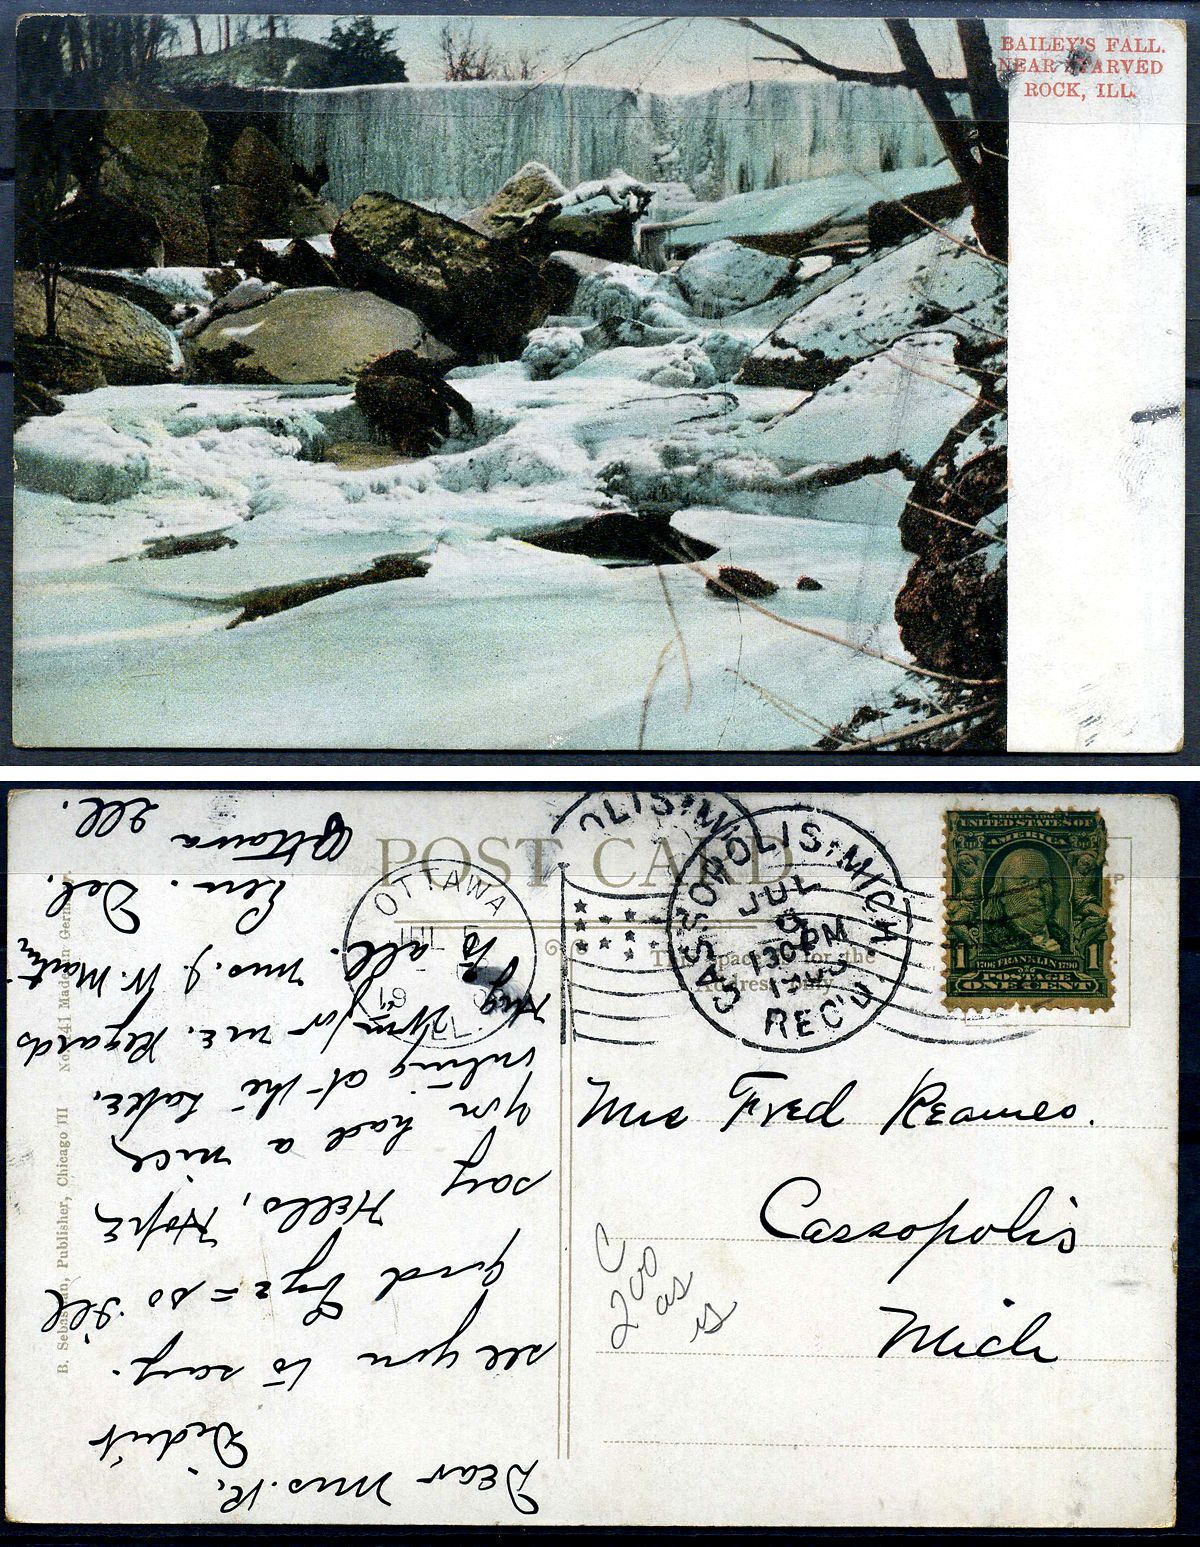 BAILEY'S FALL.
NEAR STARVED
ROCK, ILL.
POST CARD
This space for the
Address only
OTTAWA
ILL
CASSOPOLIS, MICH.
JUL
1 30 PM
REC'D.
OLIS, M
SERIES 1902
UNITED STATES OF
AMERICA
1706 FRANKLIN 1790
POSTAGE
1 ONE CENT 1
B. Sebastian, Publisher, Chicago III No. 41 Made in Germany.
Mrs Fred Reames.
Cassopolis
Mich
C
200
as
is
Dear Mrs. R.
Didn't
see you to say.
good bye = so I'll
say Hello, Hope
you had a nice
outing at the Lake.
Hug Wm for me. Regards
to all. Mrs. J. W. Martin
Gen. Del.
Ottawa
Ill.